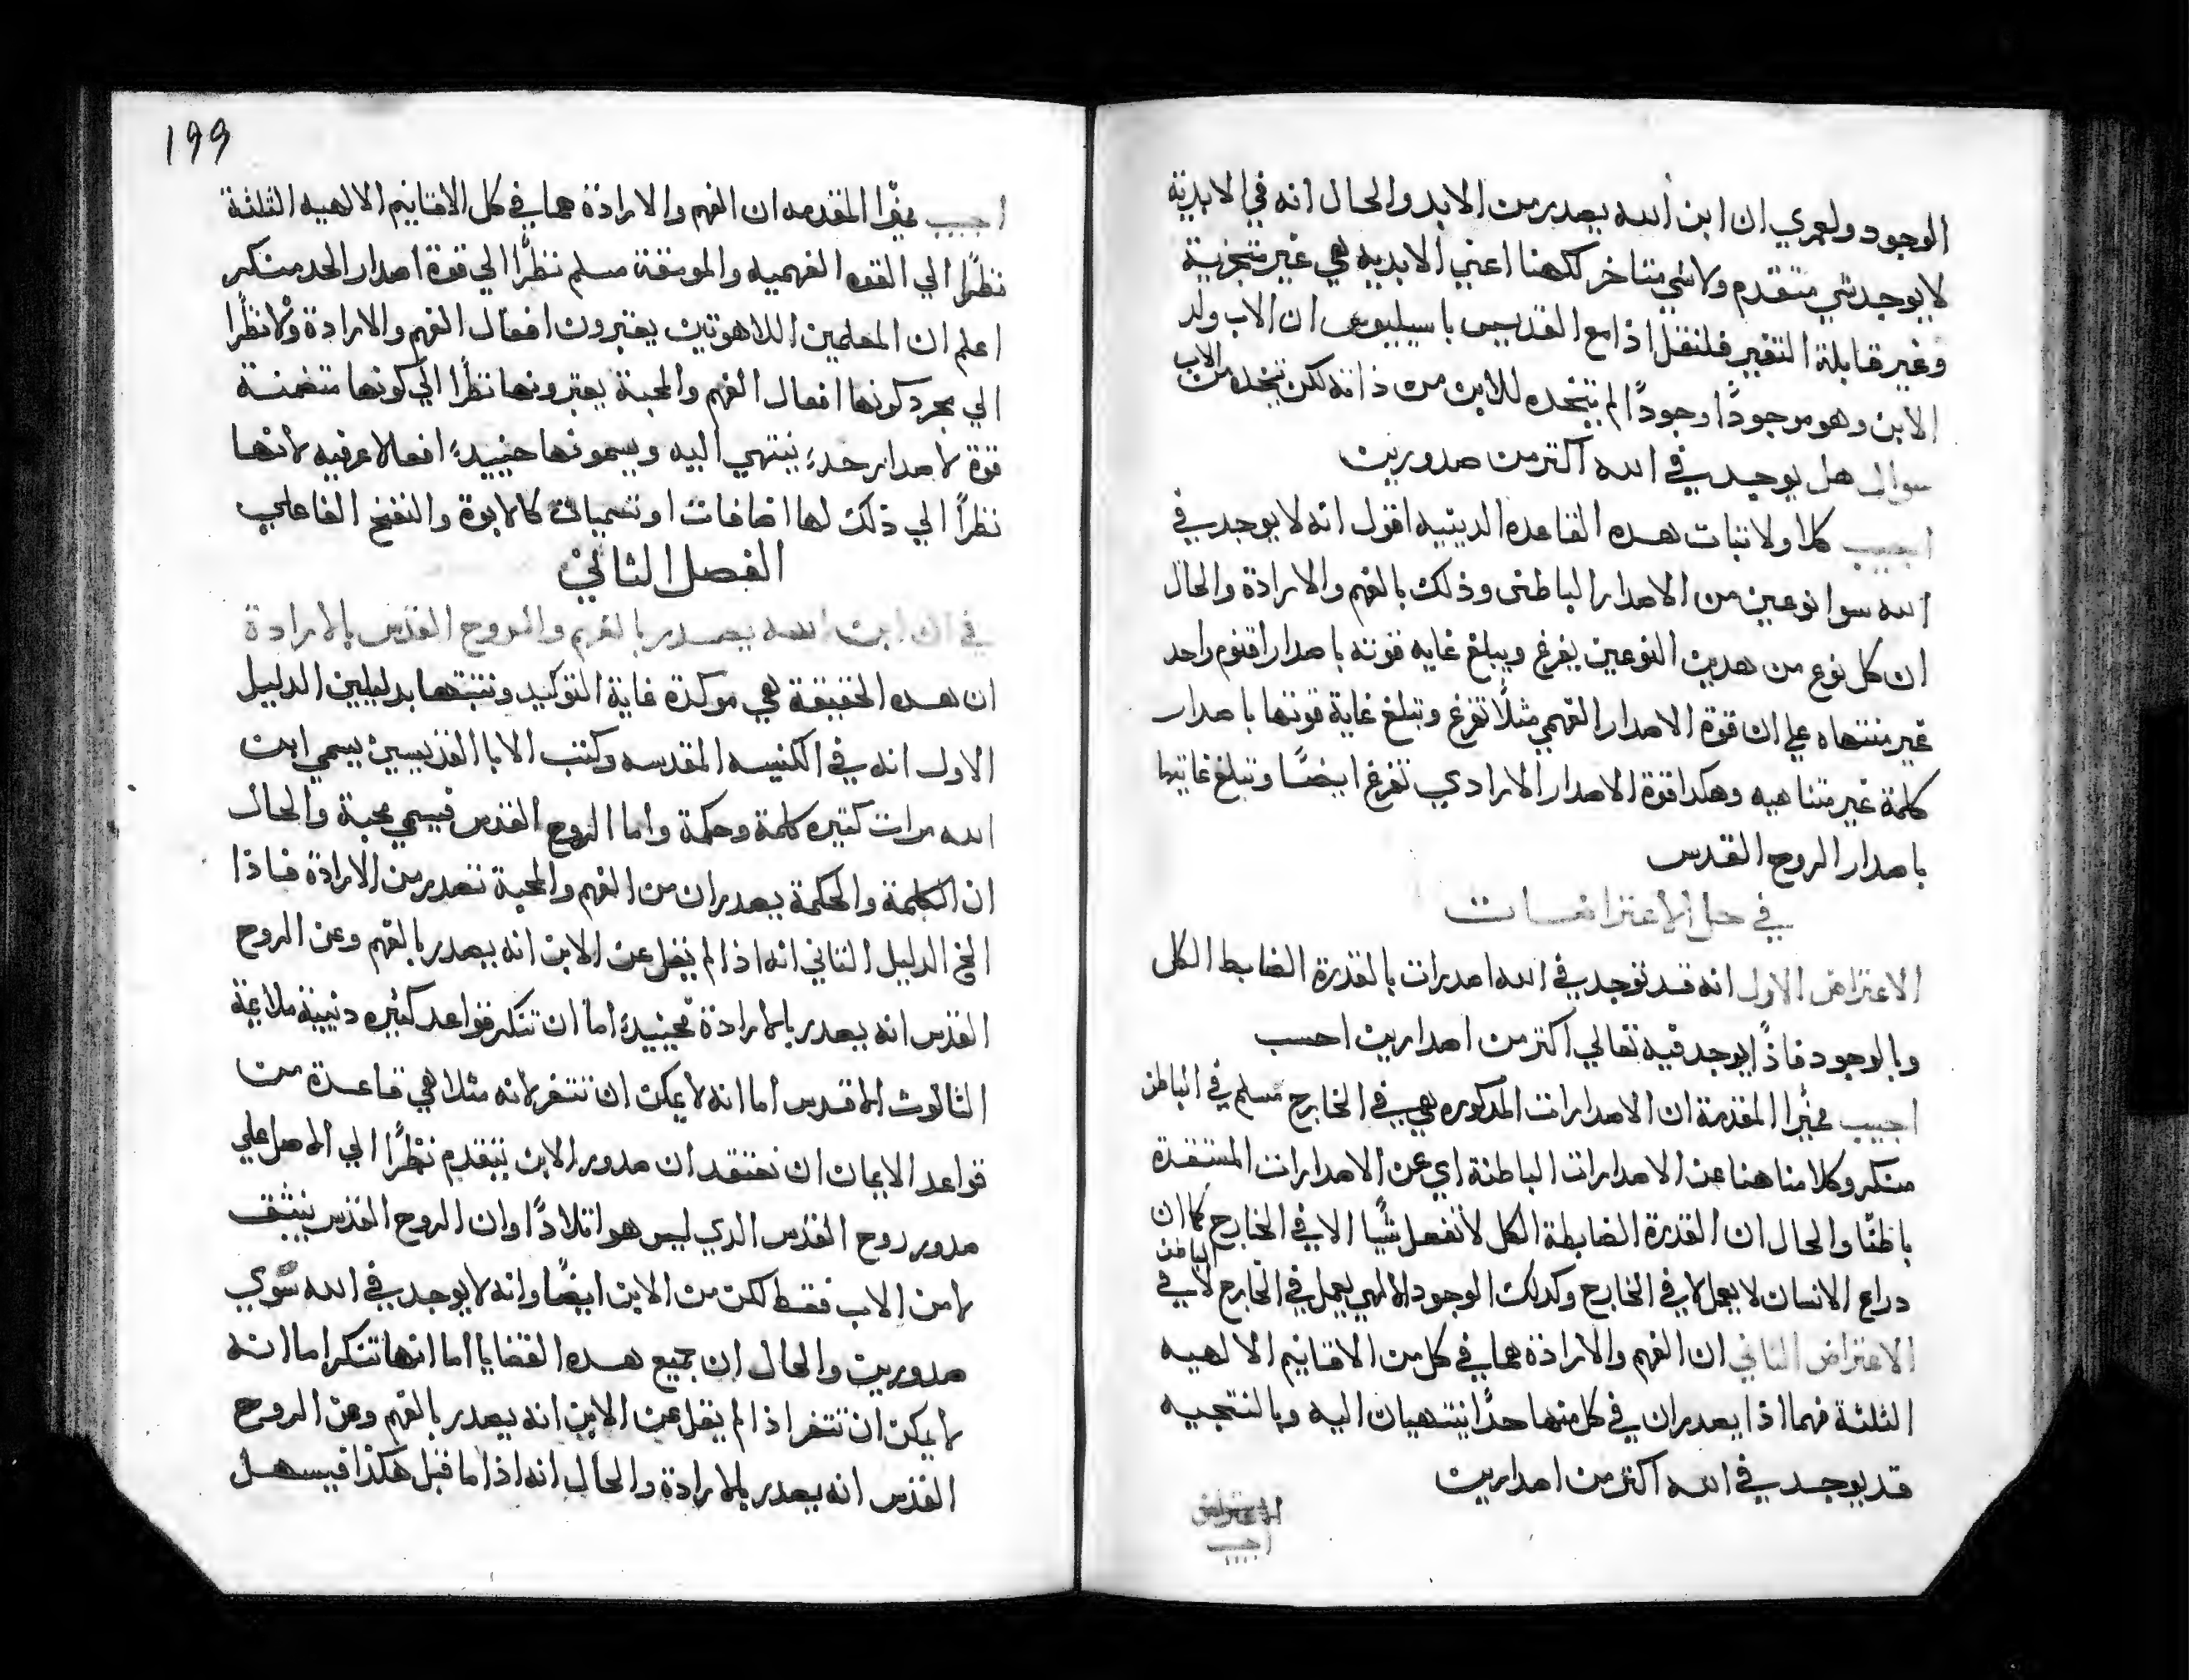 الوجود ولعمري ان ابن الله يصدر من الابد والحال انه في الابدية
لا يوجد شي متقدم ولا شي متاخر لكنها اعني الابديه هي غير متجزية
وغير قابلة التغير فلنقل اذا مع القديس باسيليوس ان الاب ولد
الابن وهو موجودًا وجودًا لم يتخده للابن من ذاته لكن يتخده من الاب
سوال هل يوجد في الله اكتر من صدورين
اجيب كلا ولاتبات هده القاعده الدينيه اقول انه لا يوجد في
الله سوا نوعين من الاصدار الباطن وذلك بالفهم والارادة والحال
ان كل نوع من هدين النوعين يفرغ ويبلغ غايه قوته باصدار اقنوم واحد
غير متناه علي ان قوة الاصدار الفهمي مثلًا تفرغ وتبلغ غاية قوتها باصدار
كلمة غير متناهيه وهكدا قوة الاصدار الارادي تفرغ ايضًا وتبلغ غايتها
باصدار الروح القدس
في حل الاعتراضات
الاعتراض الاول انه قد توجد في الله اصدرات بالقدرة الضابط الكل
وبالوجود فاذًا يوجد فيه تعالي اكتر من اصدارين احسب
اجيب مميزًا المقدمة ان الاصدارات المدكوره هي في الخارج مسلم في الباطن
منكر وكلامنا هنا عن الاصدارات الباطنة اي عن الاصدارات المستقدة
باطنًا والحال ان القدرة الضابطة الكل لا تفعل شيًا الا في الخارج كما ان
دراع الانسان لا يعمل الا في الخارج وكدلك الوجود الالهي يعمل في الخارج لا في الباطن
الاعتراض التاني ان الفهم والارادة هما في كل من الاقانيم الالهيه
الثلثة فهما اذا يصدران في كل منها حدًا ينتهيان اليه وبالنتجيه
قد يوجد في الله اكتر من اصدارين
الاعتراض
اجيب
١٩٩
اجيب مميزًا المقدمه ان الفهم والارادة هما في كل الاقانيم الالهيه الثلثة
نظرًا الي القوه الفهميه والموسقة مسلم نظرًا الي قوة اصدار الحد منكر
اعلم ان المعلمين اللاهوتين يعتبرون افعال الفهم والارادة ولا نظرًا
الي مجرد كونها افعال الفهم والمحبة يعتبرونها نظرًا الي كونها متضمنة
قوة لاصدار حدٍ ينتهي اليه ويسمونها حينيدٍ افعالا عرفيه لانها
نظرًا الي ذلك لها اضافات او تسميات كالابوة والنفخ الفاعلي
الفصل الثاني
في ان ابن الله يصدر بالفهم والروح القدس بالارادة
ان هده الحقيقة هي موكدة غاية التوكيد ونتبتها بدليلين الدليل
الاول انه في الكنيسه المقدسه وكتب الابا القديسين يسمي ابن
الله مرات كتيره كلمة وحكمة واما الروح القدس فيسمي محبة والحال
ان الكلمة والحكمة يصدران من الفهم والمحبة تصدر من الارادة فاذا
الخ الدليل التاني انه اذا لم يقل عن الابن انه يصدر بالفهم وعن الروح
القدس انه يصدر بالارادة فحينيدٍ اما ان تنكر قواعد كتيره دينية ملايمة
الثالوث الاقدس اما انه لا يمكن ان تتفسر لانه مثلا هي قاعدة من
قواعد الايمان ان نعتقد ان صدور الابن يتقدم نظرًا الي الاصل علي
صدور روح القدس الدي ليس هو اتلادًا وان الروح القدس ينبثق
لا من الاب فقط لكن من الابن ايضًا وانه لا يوجد في الله سوي
صدورين والحال ان جميع هده القضايا اما انها تنكر اما انه
لا يمكن ان تتفسر اذا لم يقل عن الابن انه يصدر بالفهم وعن الروح
القدس انه يصدر بالارادة والحال انه اذا ما قبل هكذا فيسهل